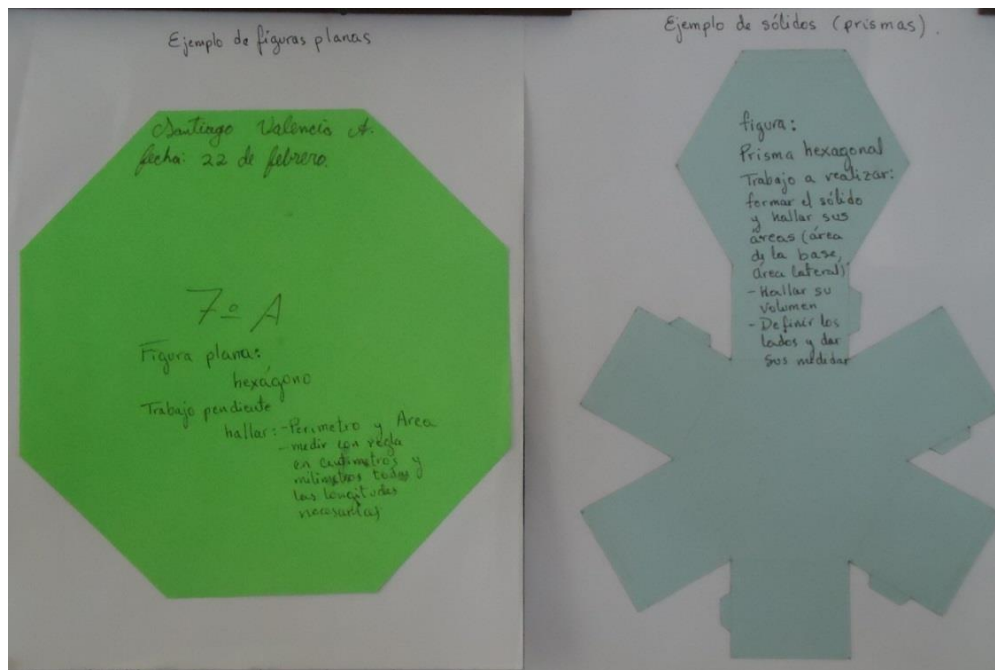 Ejemplo de figuras planas
Santiago Valencia A.
fecha: 22 de febrero.
7º A
Figura plana:
hexágono
Trabajo pendiente
hallar: -Perimetro y Area
- medir con regla
en centimetros y
milimetros todas
las longitudes
necesarias
Ejemplo de sólidos (prismas).
figura:
Prisma hexagonal
Trabajo a realizar:
formar el sólido
y hallar sus
áreas (área
de la base,
área lateral)
- Hallar su
volumen
- Definir los
lados y dar
sus medidas